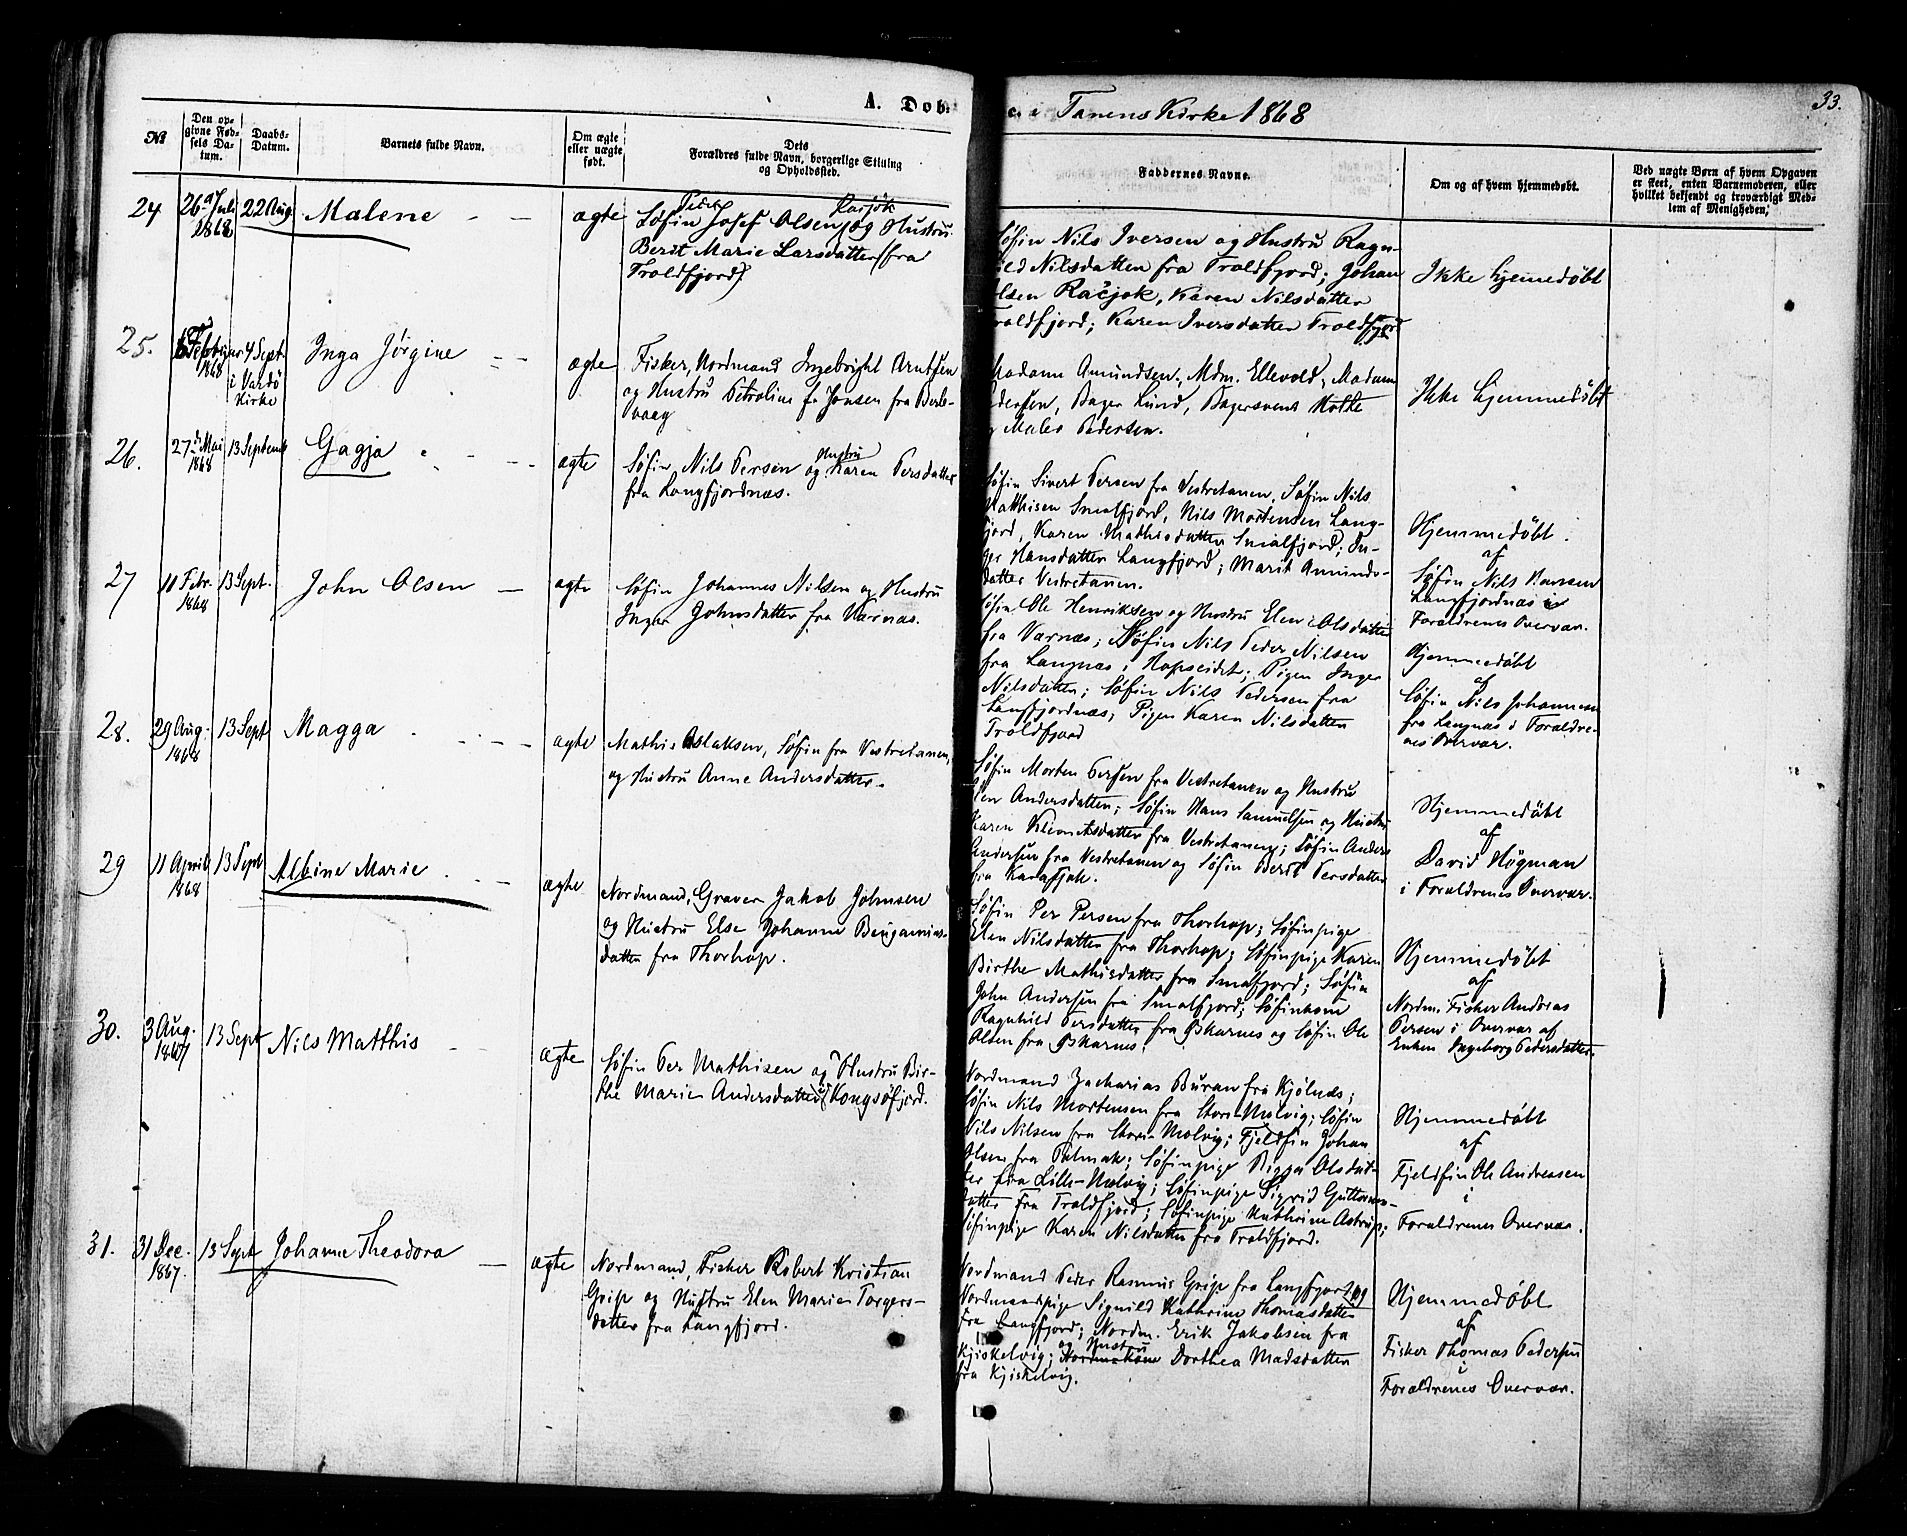 A. Døb
e i Tanens Kirke 1868
33.
No
Den op-
givne Fød-
sels Da-
tum.
Daabs-
Datum.
Barnets fulde Navn.
Om ægte
eller uægte
født.
Dets
Forældres fulde Navn, borgerlige Stilling
og Opholdssted.
Faddernes Navne.
Om og af hvem hjemmedøbt.
Ved uægte Børn af hvem Opgaven
er skeet, enten Barnemoderen, eller
hvilket bekjendt og troværdigt Med-
lem af Menigheden,
24
26 Juli
1868
22 Aug.
Malene
ægte
Søfin Josef Olsen og Hustru
Berit Marie Larsdatter (fra
Troldfjord).
Søfin Nils Iversen og Hustru Ragn-
ild Nilsdatter fra Troldfjord; Johan
Olsen Racjok, Karen Nilsdatter
Troldfjord; Karen Iversdatter Troldfjord
Ikke hjemedøbt
25.
1868
4 Sept.
i Vardö
Kirke
Inga Jørgine
ægte
Fisker, Nordmand Ingebright Arntsen
og Hustru Petroline f. Jonsen fra Berle-
vaag
Madam Amundsen, Mdm. Ellevold, Madam
Pedersen, Bager Lund, Bagersvend Holte
og Maler Pedersen.
Ikke hjemmedøbt
26.
27 Mai
1868
13 Septemb
Gagja
ægte
Søfin Nils Persen og Hustru Karen Persdatter
fra Langfjordnæs.
Søfin Sivert Persen fra Vestretanen, Søfin Nils
Matthisen Smalfjord, Nils Mortensen Lang-
fjord, Karen Mathisdatter Smalfjord; In-
ger Hansdatter Langfjord; Marit Amunds-
datter Vestretanen.
Hjemmedøbt
af
Søfin Nils Hansen
Langfjordnæs i
Forældrenes Overvær.
27
11 Febr.
1868
13 Sept.
John Olsen
ægte
Søfin Johannes Nilsen og Hustru
Inger Johnsdatter fra Varnæs.
Søfin Ole Henriksen og Hustru Elen Olsdatter
fra Varnæs; Søfin Nils Peder Nilsen
fra Langnæs; Hopseidet; Pigen Inger
Nilsdatter; Søfin Nils Pedersen fra
Langfjordnæs; Pigen Karen Nilsdatter
Troldfjord
Hjemmedøbt
af
Søfin Nils Johannesen
fra Langnæs i Forældre-
nes Overvær.
28.
29 Aug.
1868
13 Sept
Magga
ægte
Mathis Aslaksen, Søfin fra Vestretanen,
og Hustru Anne Andersdatter.
Søfin Morten Persen fra Vestretanen og Hustru
Elen Andersdatter; Søfin Hans Samuelsen og Hustru
Karen Klemetsdatter fra Vestretanen; Søfin Anders
Andersen fra Vestretanen og Søfin Berit Persdatter
fra Karasjok.
Hjemmedøbt
af
David Høgman
i Forældrenes Overvær.
29
11 April
1868
13 Sept
Albine Marie
ægte
Nordmand, Graver Jakob Johnsen
og Hustru Else Johanne Benjamins-
datter fra Thorhop.
Søfin Per Persen fra Thorhop; Søfinpige
Elen Nilsdatter fra Thorhop; Søfinpige Karen
Birthe Mathisdatter fra Smalfjord; Søfin
John Andersen fra Smalfjord; Søfinkone
Ragnhild Persdatter fra og Søfin Ole
Olsen fra
Hjemmedøbt
af
Nordm. Fisker Andreas
Persen i Overvær af
Enken Ingeborg Pedersdatter.
30.
3 Aug.
1867
13 Sept
Nils Matthis
ægte
Søfin Per Mathisen og Hustru Bir-
the Marie Andersdatter Kongsøfjord.
Nordmand Zacharias Buran fra Kjølnæs;
Søfin Nils Mortensen fra Store-Molvig; Søfin
Nils Nilsen fra Store-Molvig; Fjeldfin Johan
Olsen fra Polmak; Søfinpige Bigga Olsdat-
ter fra Lille-Molvig; Søfinpige Sigrid Guttorms-
datter fra Troldfjord; Søfinpige Kathrine Astrup;
Søfinpige Karen Nilsdatter fra Troldfjord.
Hjemmedøbt
af
Fjeldfin Ole Andreasen
i
Forældrenes Overvær.
31.
31 Dec.
1867.
13 Sept
Johanne Theodora
ægte
Nordmand, Fisker Robert Kristian
Grip og Hustru Elen Marie Torgers-
datter fra Langfjord.
Nordmand Peder Rasmus Grip fra Langfjord og
Nordmandspige Signild Kathrine Thomasdatter
fra Langfjord; Nordm. Erik Jakobsen fra
Kjiskelvig; og Hustru Dorthea Madsdatter
fra Kjiskelvig.
Hjemmedøbt
af
Fisker Thomas Pedersen
i
Forældrenes Overvær.